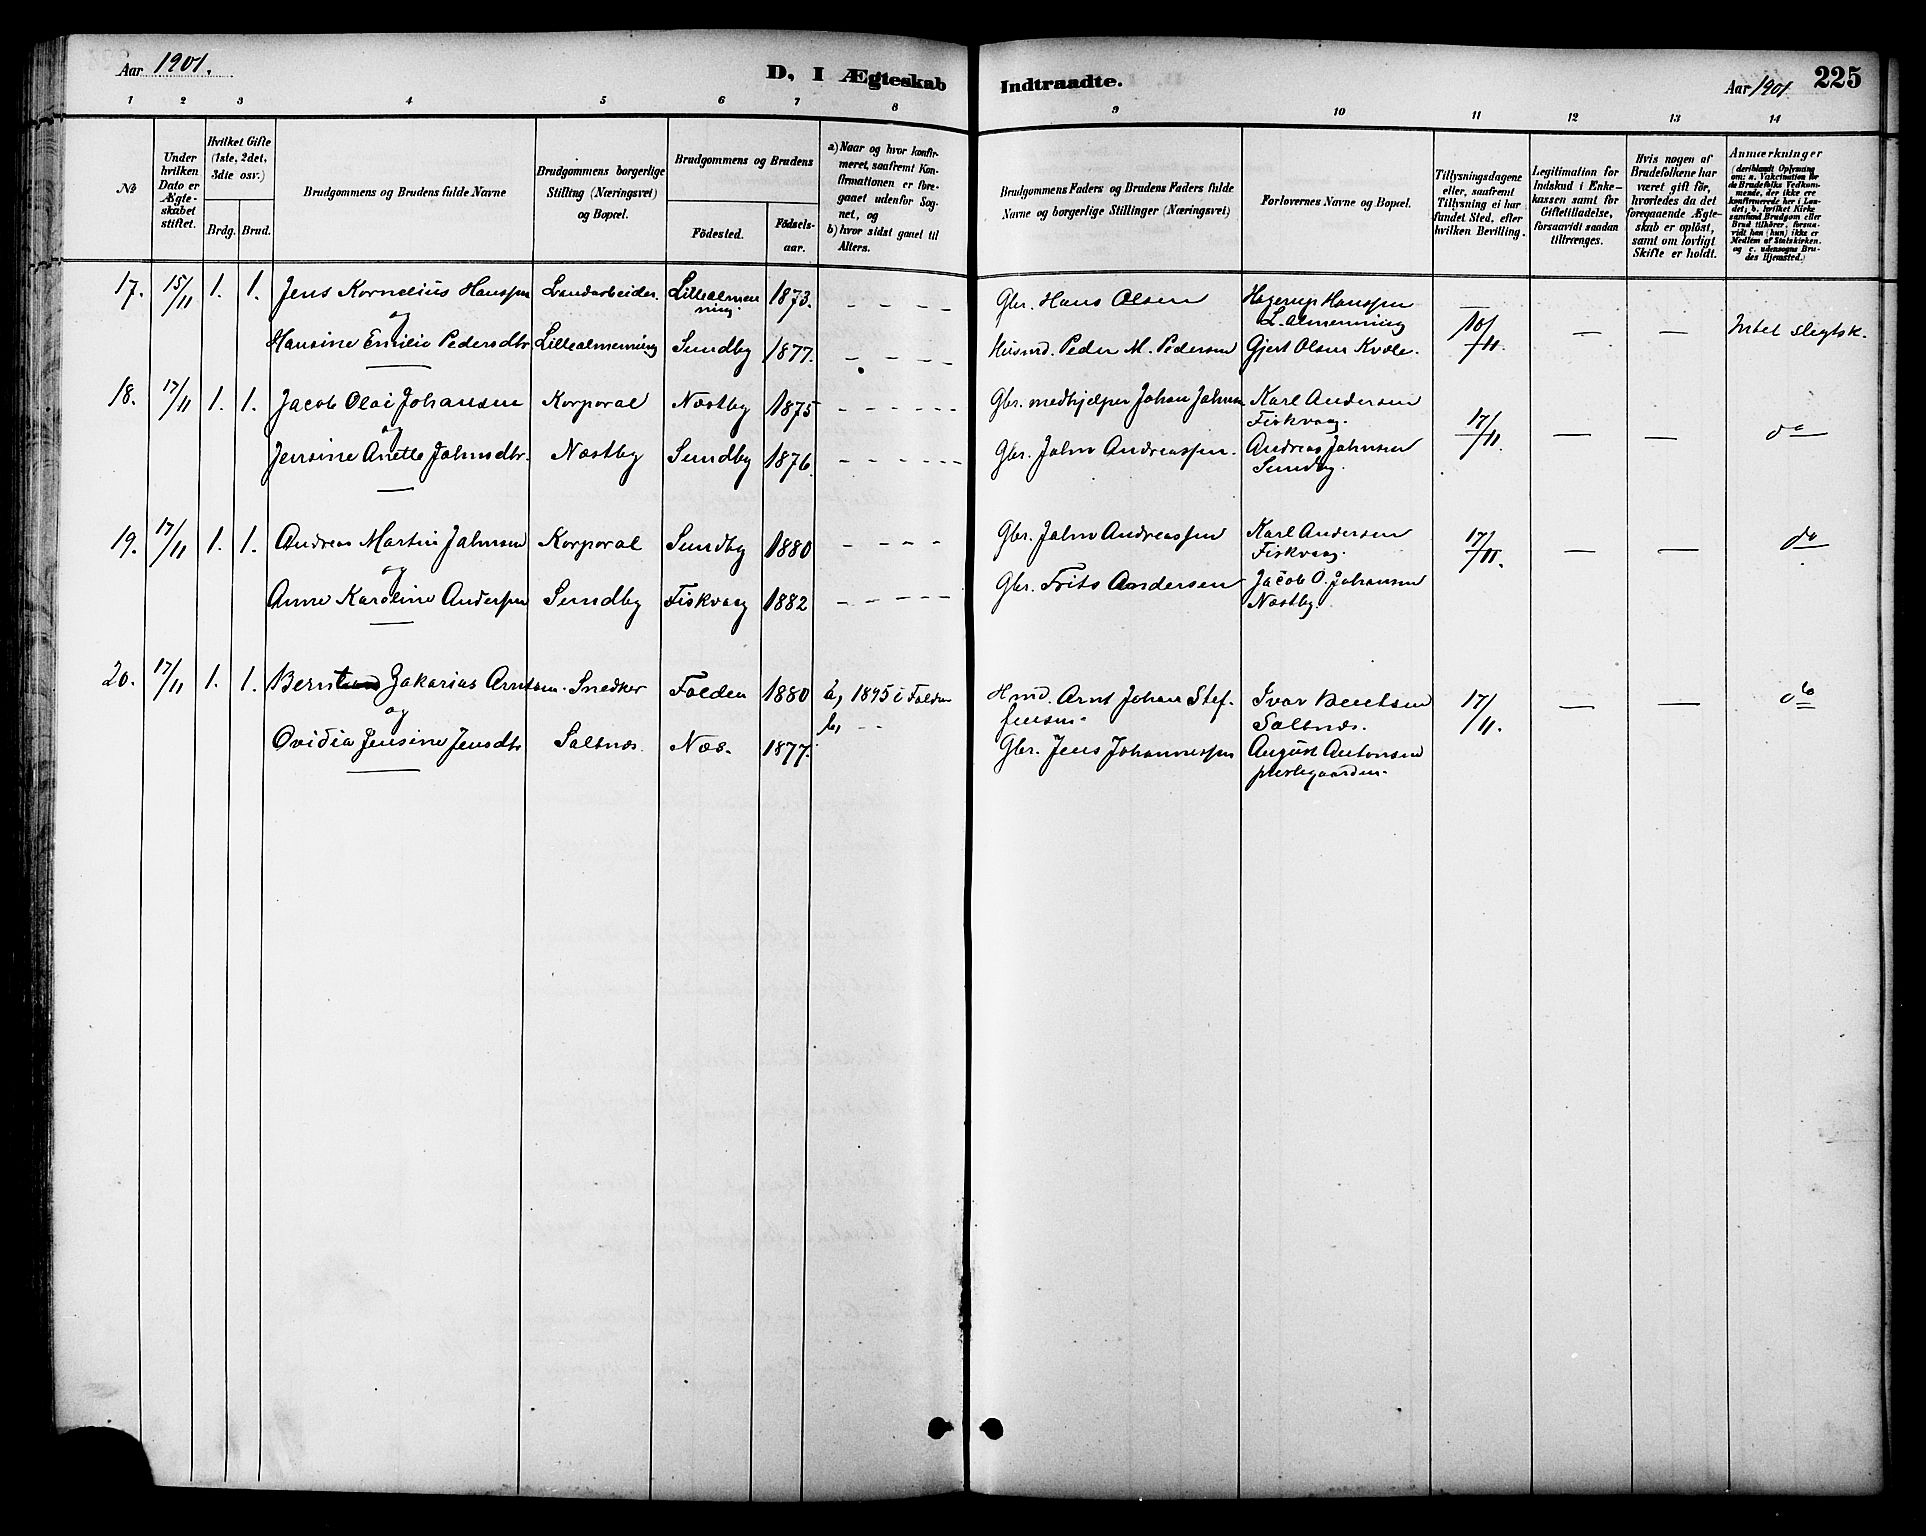 Aar 1901.
D, I Ægteskab
Indtraadte.
Aar 1901
225
1 2 3 4 5 6 7 8
9 10 11 12 13 14
No
Under hvilken Dato er Ægteskabet stiftet.
Hvilket Gifte (1ste, 2det, 3die osv.)
Brdg. Brud.
Brudgommens og Brudens fulde Navne
Brudgommens borgerlige Stilling (Næringsvei) og Bopæl.
Brudgommens og Brudens
Födested.
Födselsaar.
a) Naar og hvor konfirmeret, saafremt Konfirmationen er foregaaet udenfor Sognet, og
b) hvor sidst gaaet til Alters.
Brudgommens Faders og Brudens Faders fulde Navne og borgerlige Stillinger (Næringsvei)
Forlovernes Navne og Bopæl.
Tillysningsdagene eller, saafremt Tillysning ei har fundet Sted, efter hvilken Bevilling.
Legitimation for Indskud i Enkekassen samt for Giftetilladelse, forsaavidt saadan tiltrænges.
Hvis nogen af Brudefolkene har været gift før, hvorledes da det foregaaende Ægteskab er opløst, samt om lovligt Skifte er holdt.
Anmærkninger (deriblandt Oplysning om: a. Vakcination for de Brudefolks Vedkommende, der ikke ere konfirmerede her i Landet; b. hvilket Kirkesamfund Brudgom eller Brud tilhörer, forsaavidt han (hun) ikke er Medlem af Statskirken, og c. udensogns Brudes Hjemsted.)
17. 15/11 1. 1. Jens Kornelius Hanssen Landarbeider. Lillealmenning. 1873. – – – – Gbr. Hans Olsen Hagerup Hanssen L. almenning
og
Hansine Emilie Pedersdtr Lillealmenning Sundby 1877. – – – – Husmd. Peder M. Pedersen Gjert Olsen Kvæle. 10/11. — — Intet slegtsk.
18. 17/11 1. 1. Jacob Olai Johansen Korporal Næstby 1875 – – – – – Gbr. medhjelper Johan Jahnsen Karl Andersen Fiskvaag.
og
Jensine Anette Jahnsdtr. Næstby Sundby 1876. – – – – – Gbr. Jahn Andreassen. Andreas Jahnsen Sundby. 17/11. — — do
19. 17/11 1. 1. Andreas Martin Jahnsen Korporal Sundby 1880 – – – – Gbr. Jahn Andreassen Karl Andersen Fiskvaag. 17/11. — — do
og
Anne Karoline Anderssen Sundby Fiskvaag 1882 – – – – – Gbr. Frits Andersen Jacob O. Johansen Næstby.
20. 17/11 1. 1. Bernt Zakarias Arntsen. Snedker Folden 1880 a, 1895 i Folden Hmd. Arnt Johan Steffensen. Ivar Bentsen Saltnæs. 17/11. — — do
og
b, – –
Ovidia Jensine Jensdtr Saltnæs. Næs. 1877. Gbr. Jens Johannessen August Antonsen prestegaarden.